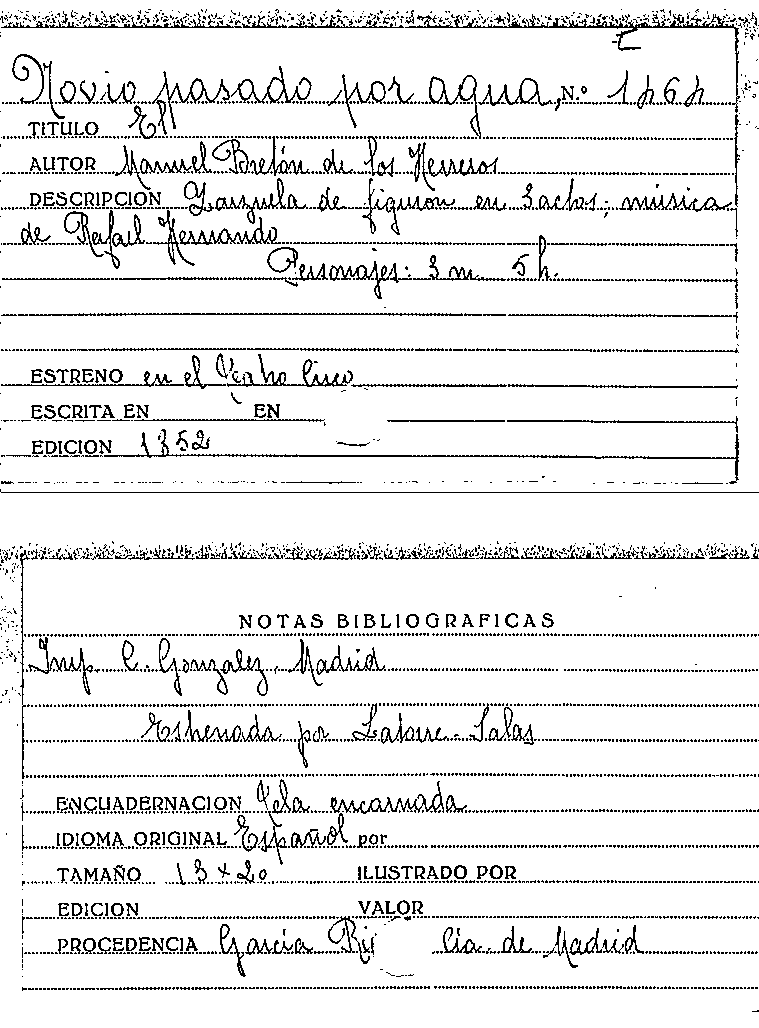 Novio pasado por agua, N.º 1464
TITULO El
AUTOR Manuel Bretón de los Herreros
DESCRIPCION Zarzuela de figuron en 3 actos; música
de Rafael Hernando
Personajes: 3 m. 5 h.
ESTRENO en el Teatro Circo
ESCRITA EN EN
EDICION 1852
NOTAS BIBLIOGRAFICAS
Imp. C. Gonzalez, Madrid
Estrenada por Latorre - Salas
ENCUADERNACION Tela encarnada
IDIOMA ORIGINAL Español por
TAMAÑO 13 x 20 ILUSTRADO POR
EDICION VALOR
PROCEDENCIA García de Madrid